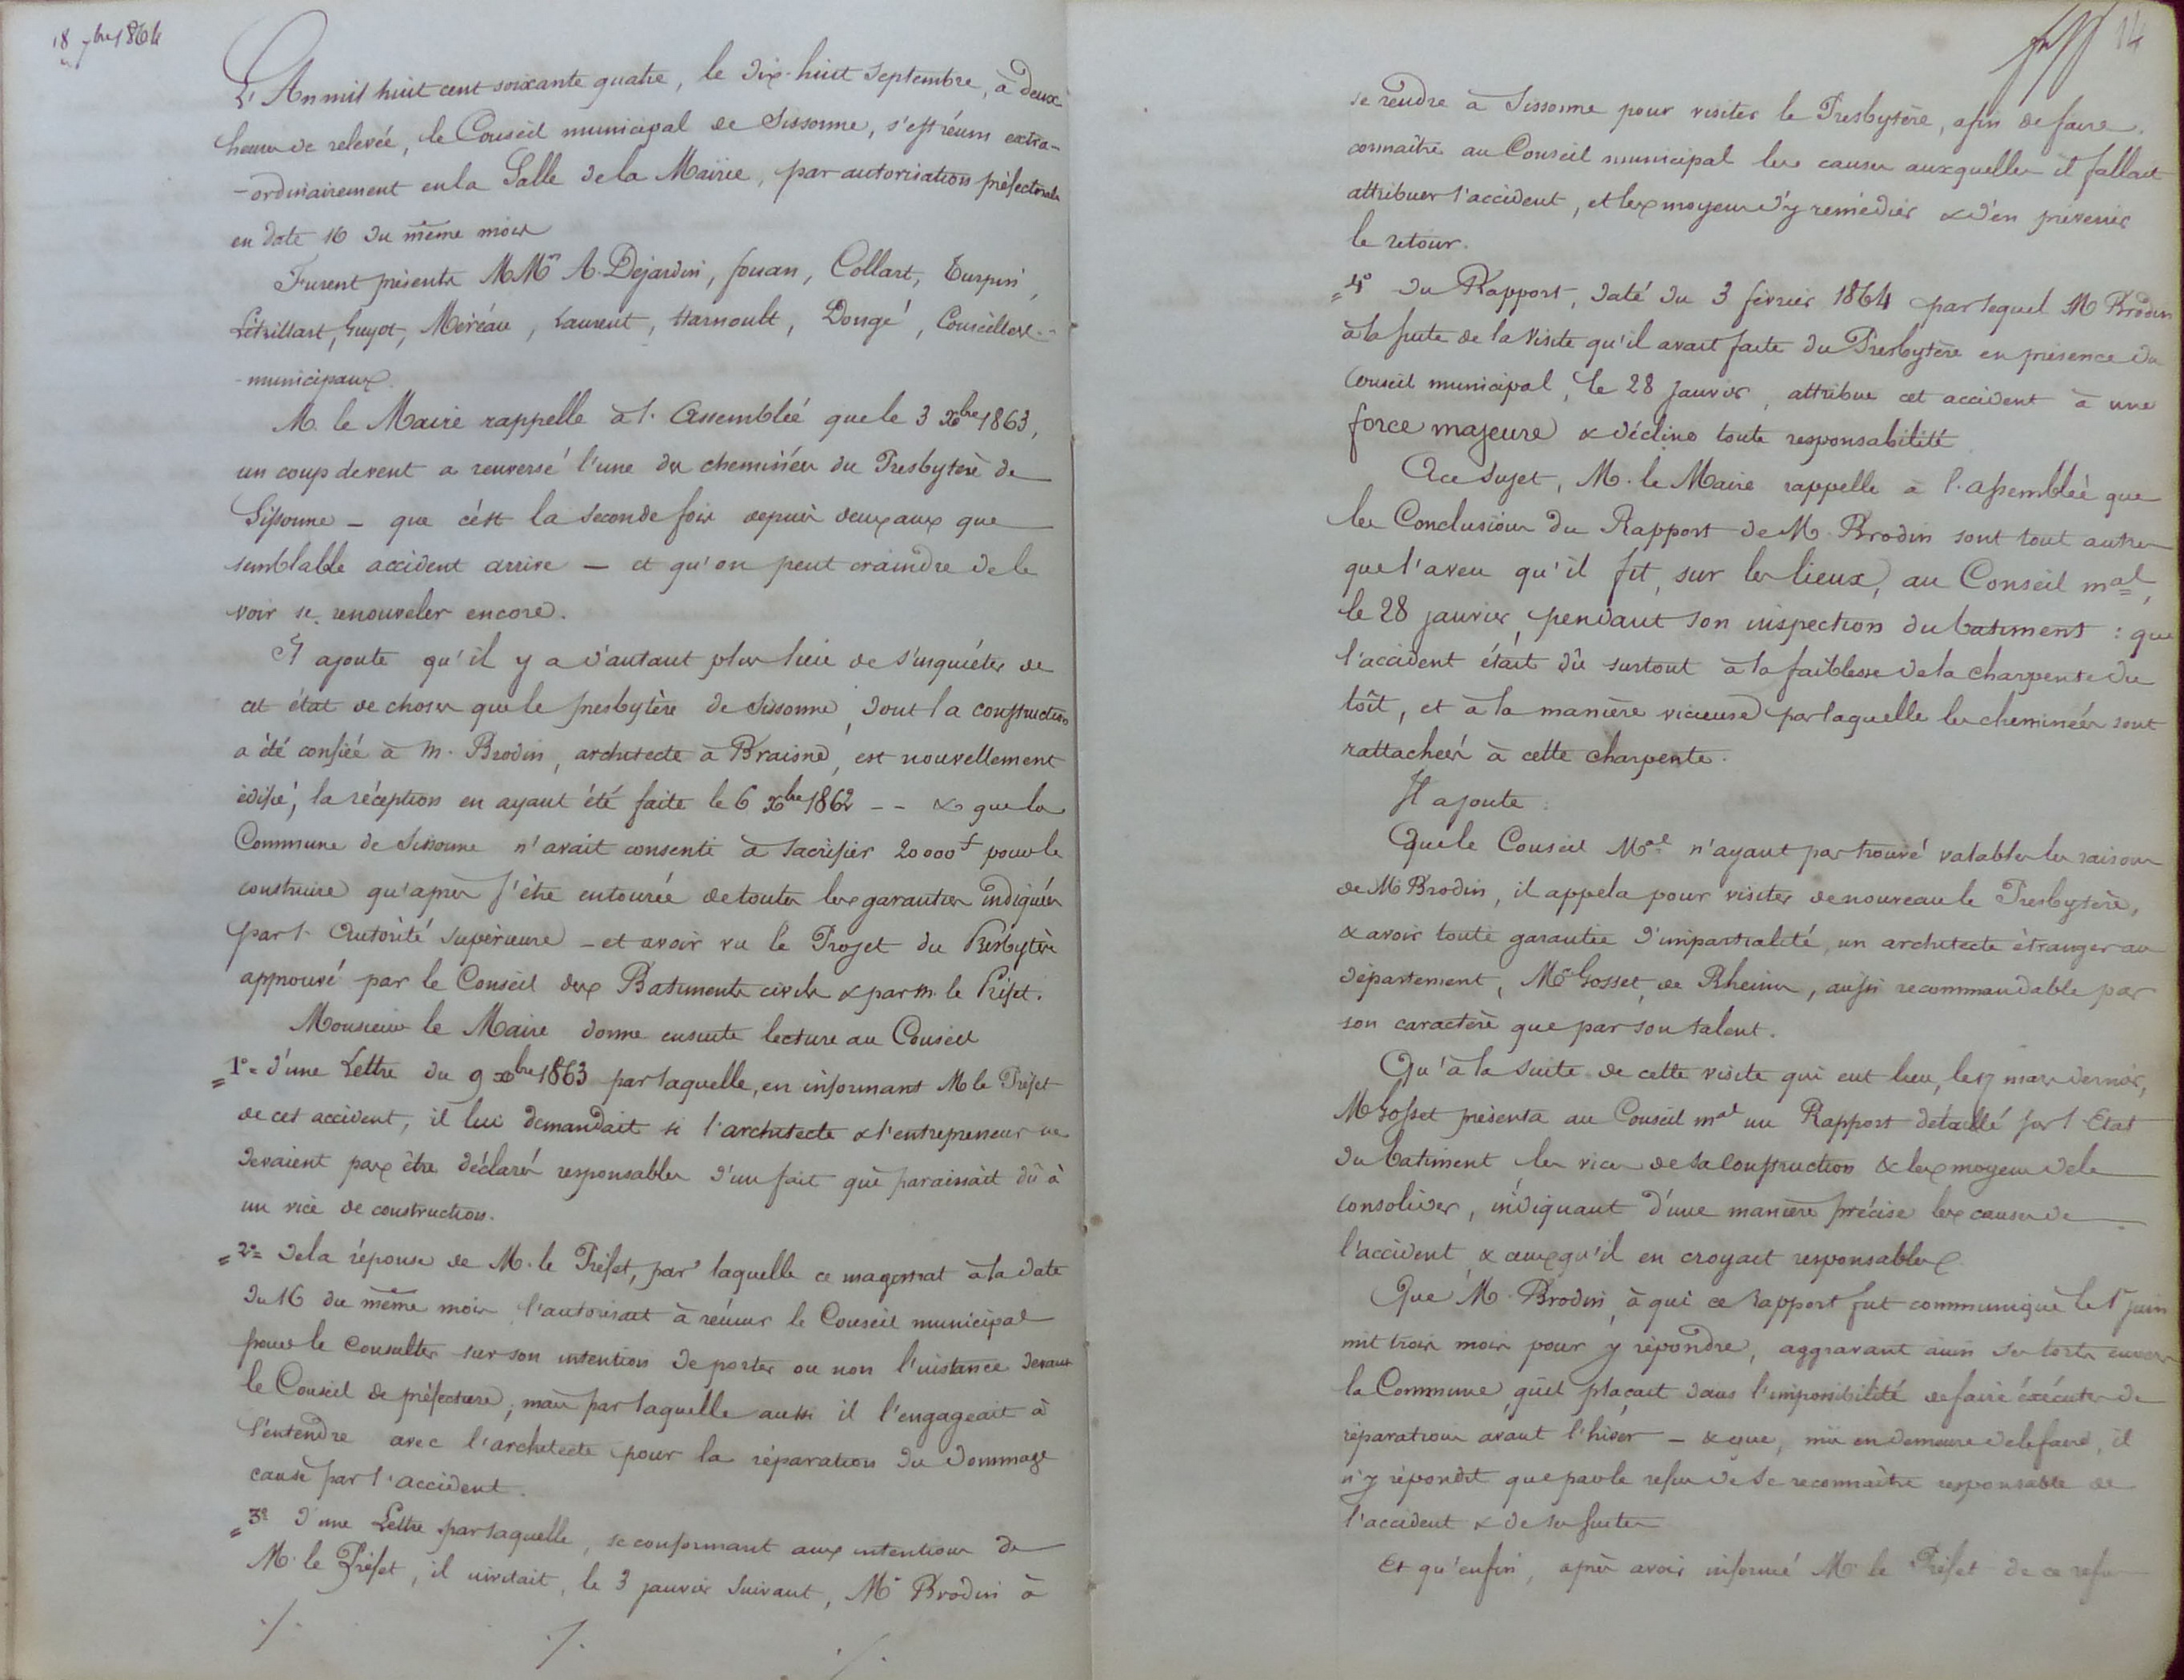 18 7bre 1864
L'An mil huit cent soixante quatre, le dix-huit Septembre, à deux
heures de relevée, le Conseil municipal de Sissonne, s'est réuni extra-
-ordinairement en la Salle de la Mairie, par autorisation préfectorale
en date 16 du même mois
Furent présents MMrs A. Dejardin, fouan, Collart, Turpin,
Létrillart, Guyot, Meréau, Laurent, Harnoult, Dongé, Conseillers
-municipaux.
M. le Maire rappelle à l'Assemblée que le 3 Xbre 1863,
un coup de vent a renversé l'une des cheminées du Presbytère de
Sissonne — que c'est la seconde fois depuis deux ans que
semblable accident arrive — et qu'on peut craindre de le
voir se renouveler encore.
Il ajoute qu'il y a d'autant plus lieu de s'inquiéter de
cet état de choses que le presbytère de Sissonne, dont la construction
a été confiée à M. Brodin, architecte à Braisne, est nouvellement
édifié; la réception en ayant été faite le 6 Xbre 1862 -- & que la
Commune de Sissonne n'avait consenti à sacrifier 20 000f pour le
construire qu'après s'être entourée de toutes les garanties indiquées
par l'Autorité supérieure — et avoir vu le Projet du Presbytère
approuvé par le Conseil des Batiments civils & par M. le Préfet.
Monsieur le Maire donne ensuite lecture au Conseil
1° = d'une Lettre du 9 Xbre 1863 par laquelle, en informant M le Préfet
de cet accident, il lui demandait si l'architecte & l'entrepreneur ne
devaient pas être déclarés responsables d'un fait qui paraissait dû à
un vice de construction.
2° = de la réponse de M. le Préfet, par laquelle ce magistrat à la date
du 16 du même mois l'autorisait à réunir le Conseil municipal
pour le Consulter sur son intention de porter ou non l'instance devant
le Conseil de préfecture; mais par laquelle aussi il l'engageait à
s'entendre avec l'architecte pour la réparation du dommage
causé par l'accident.
3° d'une Lettre par laquelle, se conformant aux intentions de
M. le Préfet, il invitait, le 3 janvier suivant, Mr Brodin à
./. ./. ./.
14
se rendre à Sissonne pour visiter le Presbytère, afin de faire
connaître au Conseil municipal les causes auxquelles il fallait
attribuer l'accident, et les moyens d'y remédier & d'en prévenir
le retour.
4° du Rapport, daté du 3 février 1864 par lequel M Brodin
à la suite de la visite qu'il avait faite du Presbytère en présence du
Conseil municipal, le 28 janvier, attribue cet accident à une
force majeure & décline toute responsabilité
A ce sujet, M. le Maire rappelle à l'assemblée que
les Conclusions du Rapport de M. Brodin sont tout autres
que l'aveu qu'il fit, sur les lieux, au Conseil mal,
le 28 janvier, pendant son inspection du batiment : que
l'accident était dû surtout à la faiblesse de la charpente du
toît, et à la manière vicieuse par laquelle les cheminées sont
rattachées à cette charpente.
Il ajoute :
Que le Conseil Mal n'ayant pas trouvé valables les raisons
de Mr Brodin, il appela pour visiter de nouveau le Presbytère,
& avoir toute garantie d'impartialité, un architecte étranger au
département, Mr Gosset, de Rheims, aussi recommandable par
son caractère que par son talent.
Qu'à la suite de cette visite qui eut lieu, le 17 mars dernier,
M Gosset présenta au Conseil mal un Rapport détaillé sur l'Etat
du batiment les vices de sa construction & les moyens de le
consolider, indiquant d'une manière précise les causes de
l'accident & ceux qu'il en croyait responsables
Que M. Brodin, à qui ce rapport fut communiqué le 1er juin
mit trois mois pour y répondre, aggravant ainsi ses torts envers
la Commune, qu'il plaçait dans l'impossibilité de faire éxécuter de
réparations avant l'hiver — & que, mis en demeure de le faire, il
n'y répondit que par le refus de se reconnaître responsable de
l'accident & de ses suites
Et qu'enfin, après avoir informé Mr le Préfet de ce refus